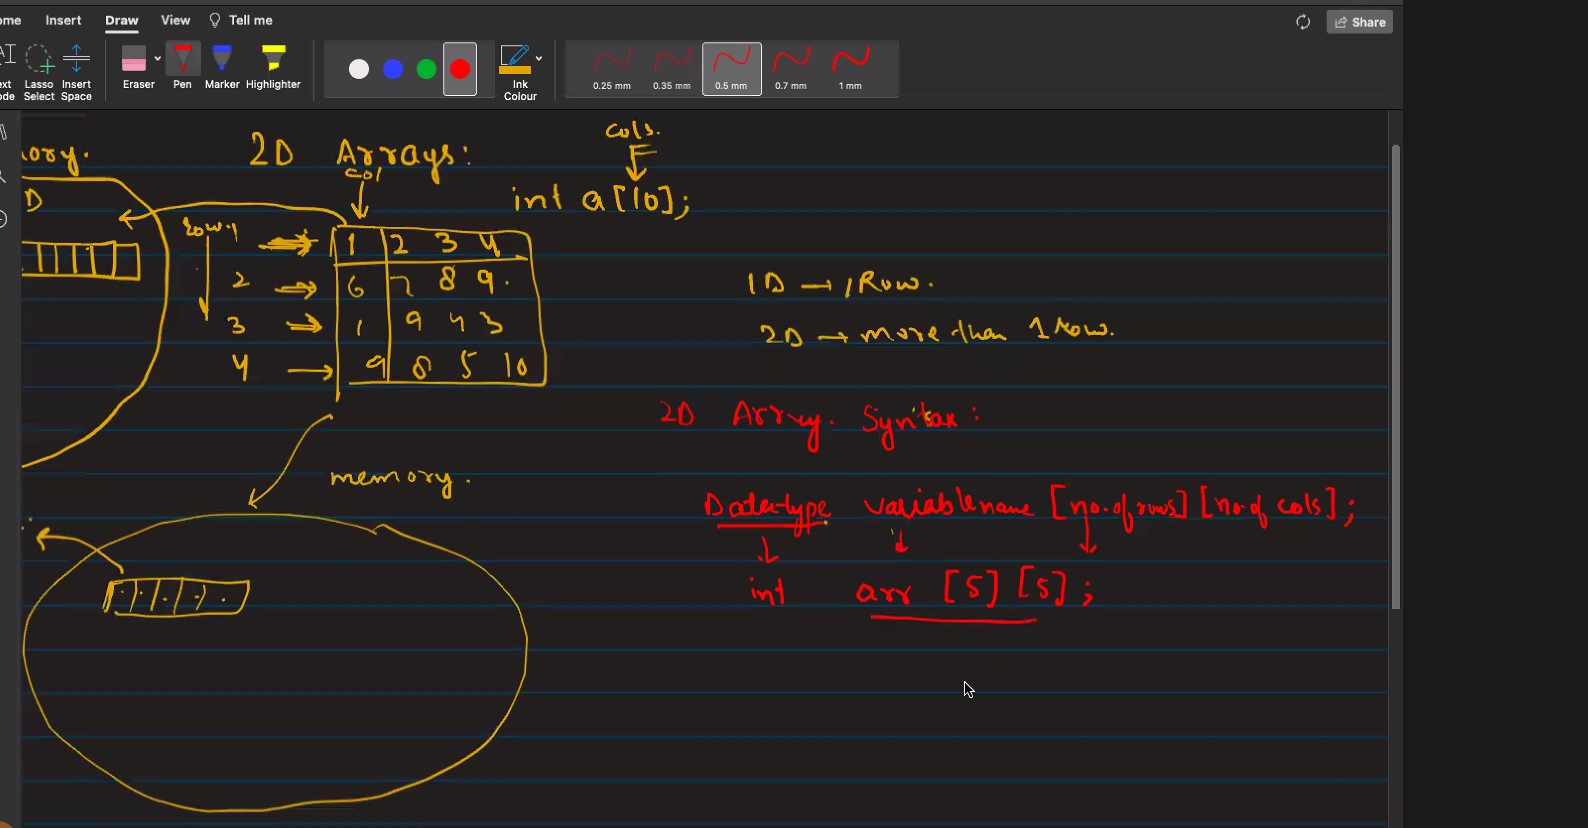 ome Insert Draw View Tell me
Share
ext
ode
Lasso
Select
Insert
Space
Eraser
Pen
Marker
Highlighter
Ink
Colour
0.25 mm
0.35 mm
0.5 mm
0.7 mm
1 mm
ory.
D
2D Arrays:
cols.
col
int a[10];
row.1
1 2 3 4
2
6 7 8 9.
3
1 9 4 3
4
9 8 5 10
1D → 1 Row.
2D → more than 1 row.
2D Array. Syntax:
memory.
Data-type variablename [no.of rows] [no.of cols];
int arr [5] [5];